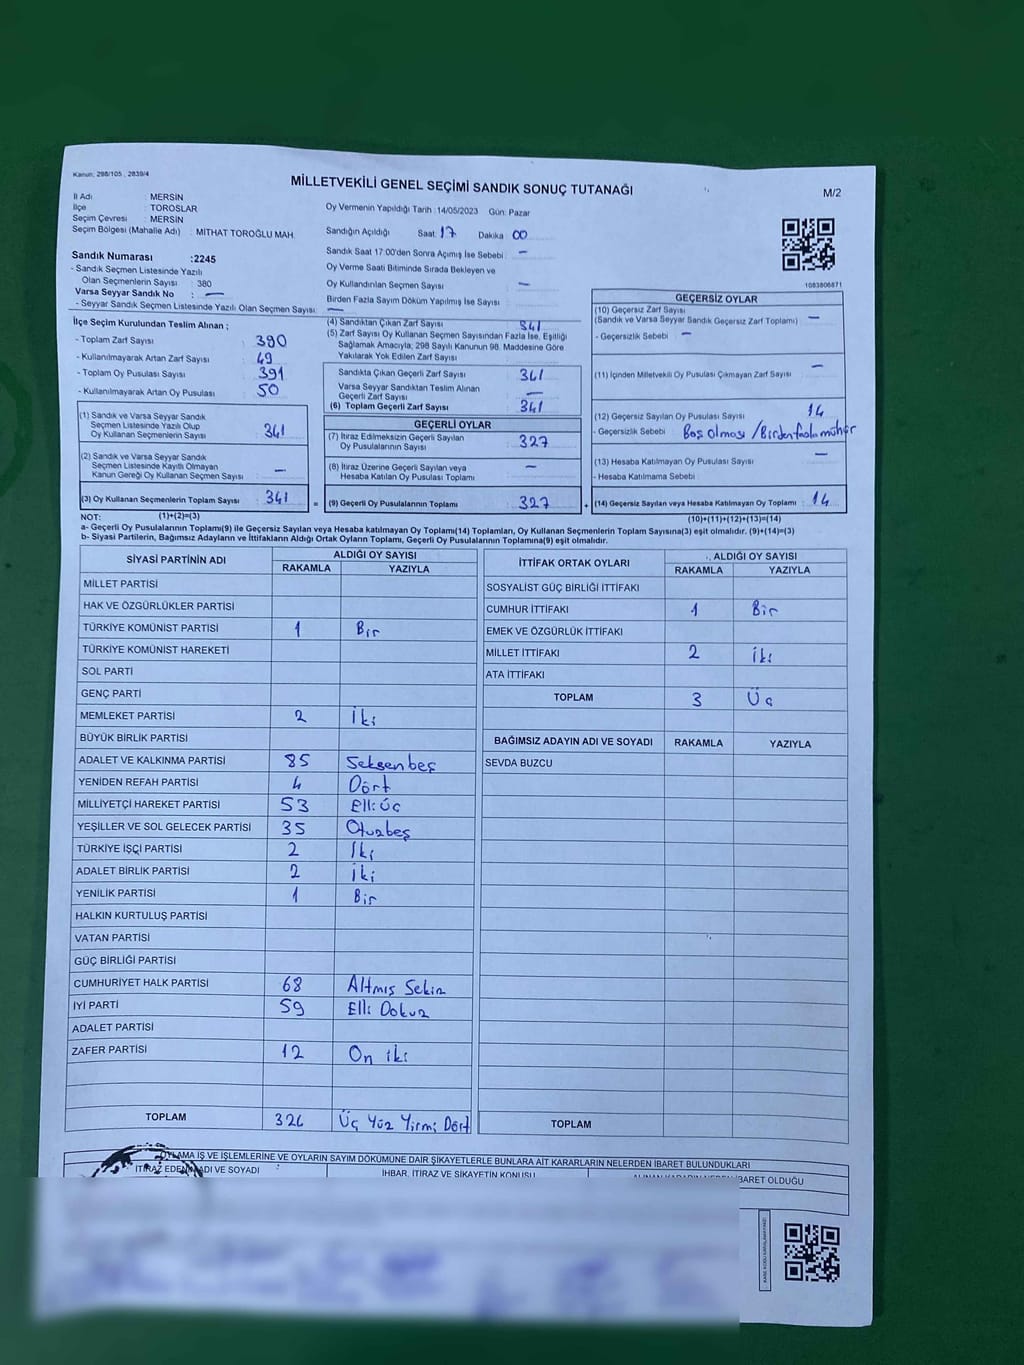 Kanun: 298/105 , 2839/4
MİLLETVEKİLİ GENEL SEÇİMİ SANDIK SONUÇ TUTANAĞI
M/2
İl Adı : MERSİN
İlçe : TOROSLAR
Seçim Çevresi : MERSİN
Seçim Bölgesi (Mahalle Adı) : MİTHAT TOROĞLU MAH.
Oy Vermenin Yapıldığı Tarih :14/05/2023 Gün: Pazar
Sandığın Açıldığı Saat: 17 Dakika 00
Sandık Saat 17:00'den Sonra Açımış İse Sebebi : –
Oy Verme Saati Bitiminde Sırada Bekleyen ve
Oy Kullandırılan Seçmen Sayısı : –
Birden Fazla Sayım Döküm Yapılmış İse Sayısı : –
Sandık Numarası :2245
- Sandık Seçmen Listesinde Yazılı
Olan Seçmenlerin Sayısı : 380
Varsa Seyyar Sandık No : –
- Seyyar Sandık Seçmen Listesinde Yazılı Olan Seçmen Sayısı:
1083806871
İlçe Seçim Kurulundan Teslim Alınan ;
- Toplam Zarf Sayısı : 390
- Kullanılmayarak Artan Zarf Sayısı : 49
- Toplam Oy Pusulası Sayısı : 391
- Kullanılmayarak Artan Oy Pusulası : 50
(1) Sandık ve Varsa Seyyar Sandık
Seçmen Listesinde Yazılı Olup
Oy Kullanan Seçmenlerin Sayısı : 341
(2) Sandık ve Varsa Seyyar Sandık
Seçmen Listesinde Kayıtlı Olmayan
Kanun Gereği Oy Kullanan Seçmen Sayısı : –
(3) Oy Kullanan Seçmenlerin Toplam Sayısı : 341
(1)+(2)=(3)
(4) Sandıktan Çıkan Zarf Sayısı : 341
(5) Zarf Sayısı Oy Kullanan Seçmen Sayısından Fazla İse, Eşitliği
Sağlamak Amacıyla, 298 Sayılı Kanunun 98. Maddesine Göre
Yakılarak Yok Edilen Zarf Sayısı :
Sandıkta Çıkan Geçerli Zarf Sayısı : 341
Varsa Seyyar Sandıktan Teslim Alınan
Geçerli Zarf Sayısı : –
(6) Toplam Geçerli Zarf Sayısı : 341
GEÇERLİ OYLAR
(7) İtiraz Edilmeksizin Geçerli Sayılan
Oy Pusulalarının Toplamı : 327
(8) İtiraz Üzerine Geçerli Sayılan veya
Hesaba Katılan Oy Pusulaları Toplamı : –
= (9) Geçerli Oy Pusulalarının Toplamı : 327
GEÇERSİZ OYLAR
(10) Geçersiz Zarf Sayısı
(Sandık ve Varsa Seyyar Sandık Geçersiz Zarf Toplamı) : –
- Geçersizlik Sebebi : –
(11) İçinden Milletvekili Oy Pusulası Çıkmayan Zarf Sayısı : –
(12) Geçersiz Sayılan Oy Pusulası Sayısı : 14
- Geçersizlik Sebebi : Boş olması / Birden fazla mühür
(13) Hesaba Katılmayan Oy Pusulası Sayısı : –
- Hesaba Katılmama Sebebi :
+ (14) Geçersiz Sayılan veya Hesaba Katılmayan Oy Toplamı : 14
(10)+(11)+(12)+(13)=(14)
NOT:
a- Geçerli Oy Pusulalarının Toplamı(9) ile Geçersiz Sayılan veya Hesaba katılmayan Oy Toplamı(14) Toplamları, Oy Kullanan Seçmenlerin Toplam Sayısına(3) eşit olmalıdır. (9)+(14)=(3)
b- Siyasi Partilerin, Bağımsız Adayların ve İttifakların Aldığı Ortak Oyların Toplamı, Geçerli Oy Pusulalarının Toplamına(9) eşit olmalıdır.
SİYASİ PARTİNİN ADI ALDIĞI OY SAYISI
RAKAMLA YAZIYLA
MİLLET PARTİSİ
HAK VE ÖZGÜRLÜKLER PARTİSİ
TÜRKİYE KOMÜNİST PARTİSİ 1 Bir
TÜRKİYE KOMÜNİST HAREKETİ
SOL PARTİ
GENÇ PARTİ
MEMLEKET PARTİSİ 2 İki
BÜYÜK BİRLİK PARTİSİ
ADALET VE KALKINMA PARTİSİ 85 Seksenbeş
YENİDEN REFAH PARTİSİ 4 Dört
MİLLİYETÇİ HAREKET PARTİSİ 53 Elli Üç
YEŞİLLER VE SOL GELECEK PARTİSİ 35 Otuzbeş
TÜRKİYE İŞÇİ PARTİSİ 2 İki
ADALET BİRLİK PARTİSİ 2 İki
YENİLİK PARTİSİ 1 Bir
HALKIN KURTULUŞ PARTİSİ
VATAN PARTİSİ
GÜÇ BİRLİĞİ PARTİSİ
CUMHURİYET HALK PARTİSİ 68 Altmış Sekiz
İYİ PARTİ 59 Elli Dokuz
ADALET PARTİSİ
ZAFER PARTİSİ 12 On iki
TOPLAM 324 Üç Yüz Yirmi Dört
İTTİFAK ORTAK OYLARI ALDIĞI OY SAYISI
RAKAMLA YAZIYLA
SOSYALİST GÜÇ BİRLİĞİ İTTİFAKI
CUMHUR İTTİFAKI 1 Bir
EMEK VE ÖZGÜRLÜK İTTİFAKI
MİLLET İTTİFAKI 2 İki
ATA İTTİFAKI
TOPLAM 3 Üç
BAĞIMSIZ ADAYIN ADI VE SOYADI RAKAMLA YAZIYLA
SEVDA BUZCU
TOPLAM
OYLAMA İŞ VE İŞLEMLERİNE VE OYLARIN SAYIM DÖKÜMÜNE DAİR ŞİKAYETLERLE BUNLARA AİT KARARLARIN NELERDEN İBARET BULUNDUKLARI
İTİRAZ EDENİN ADI VE SOYADI
İHBAR, İTİRAZ VE ŞİKAYETİN KONUSU
İBARET OLDUĞU